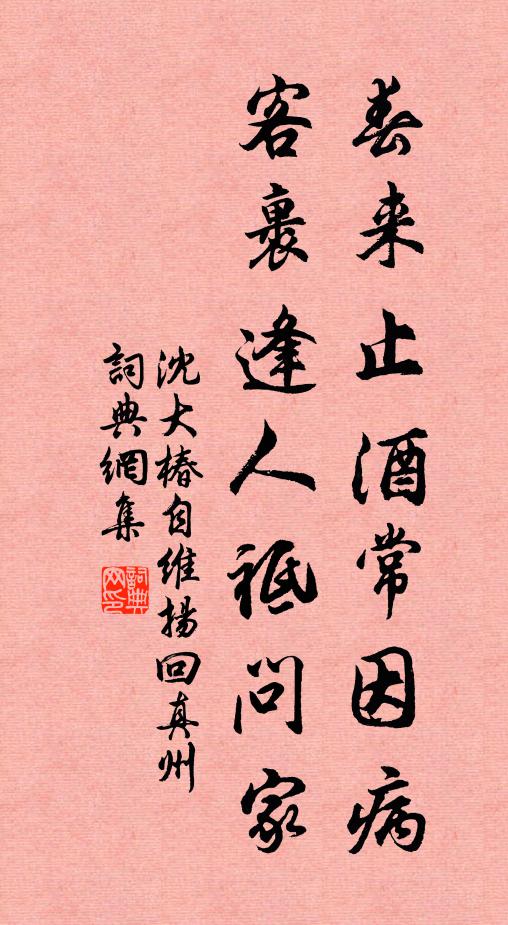 春来止酒常因病
客裏逢人祗問家
沈大椿自維揚回真州
詞典網集
詞典网印